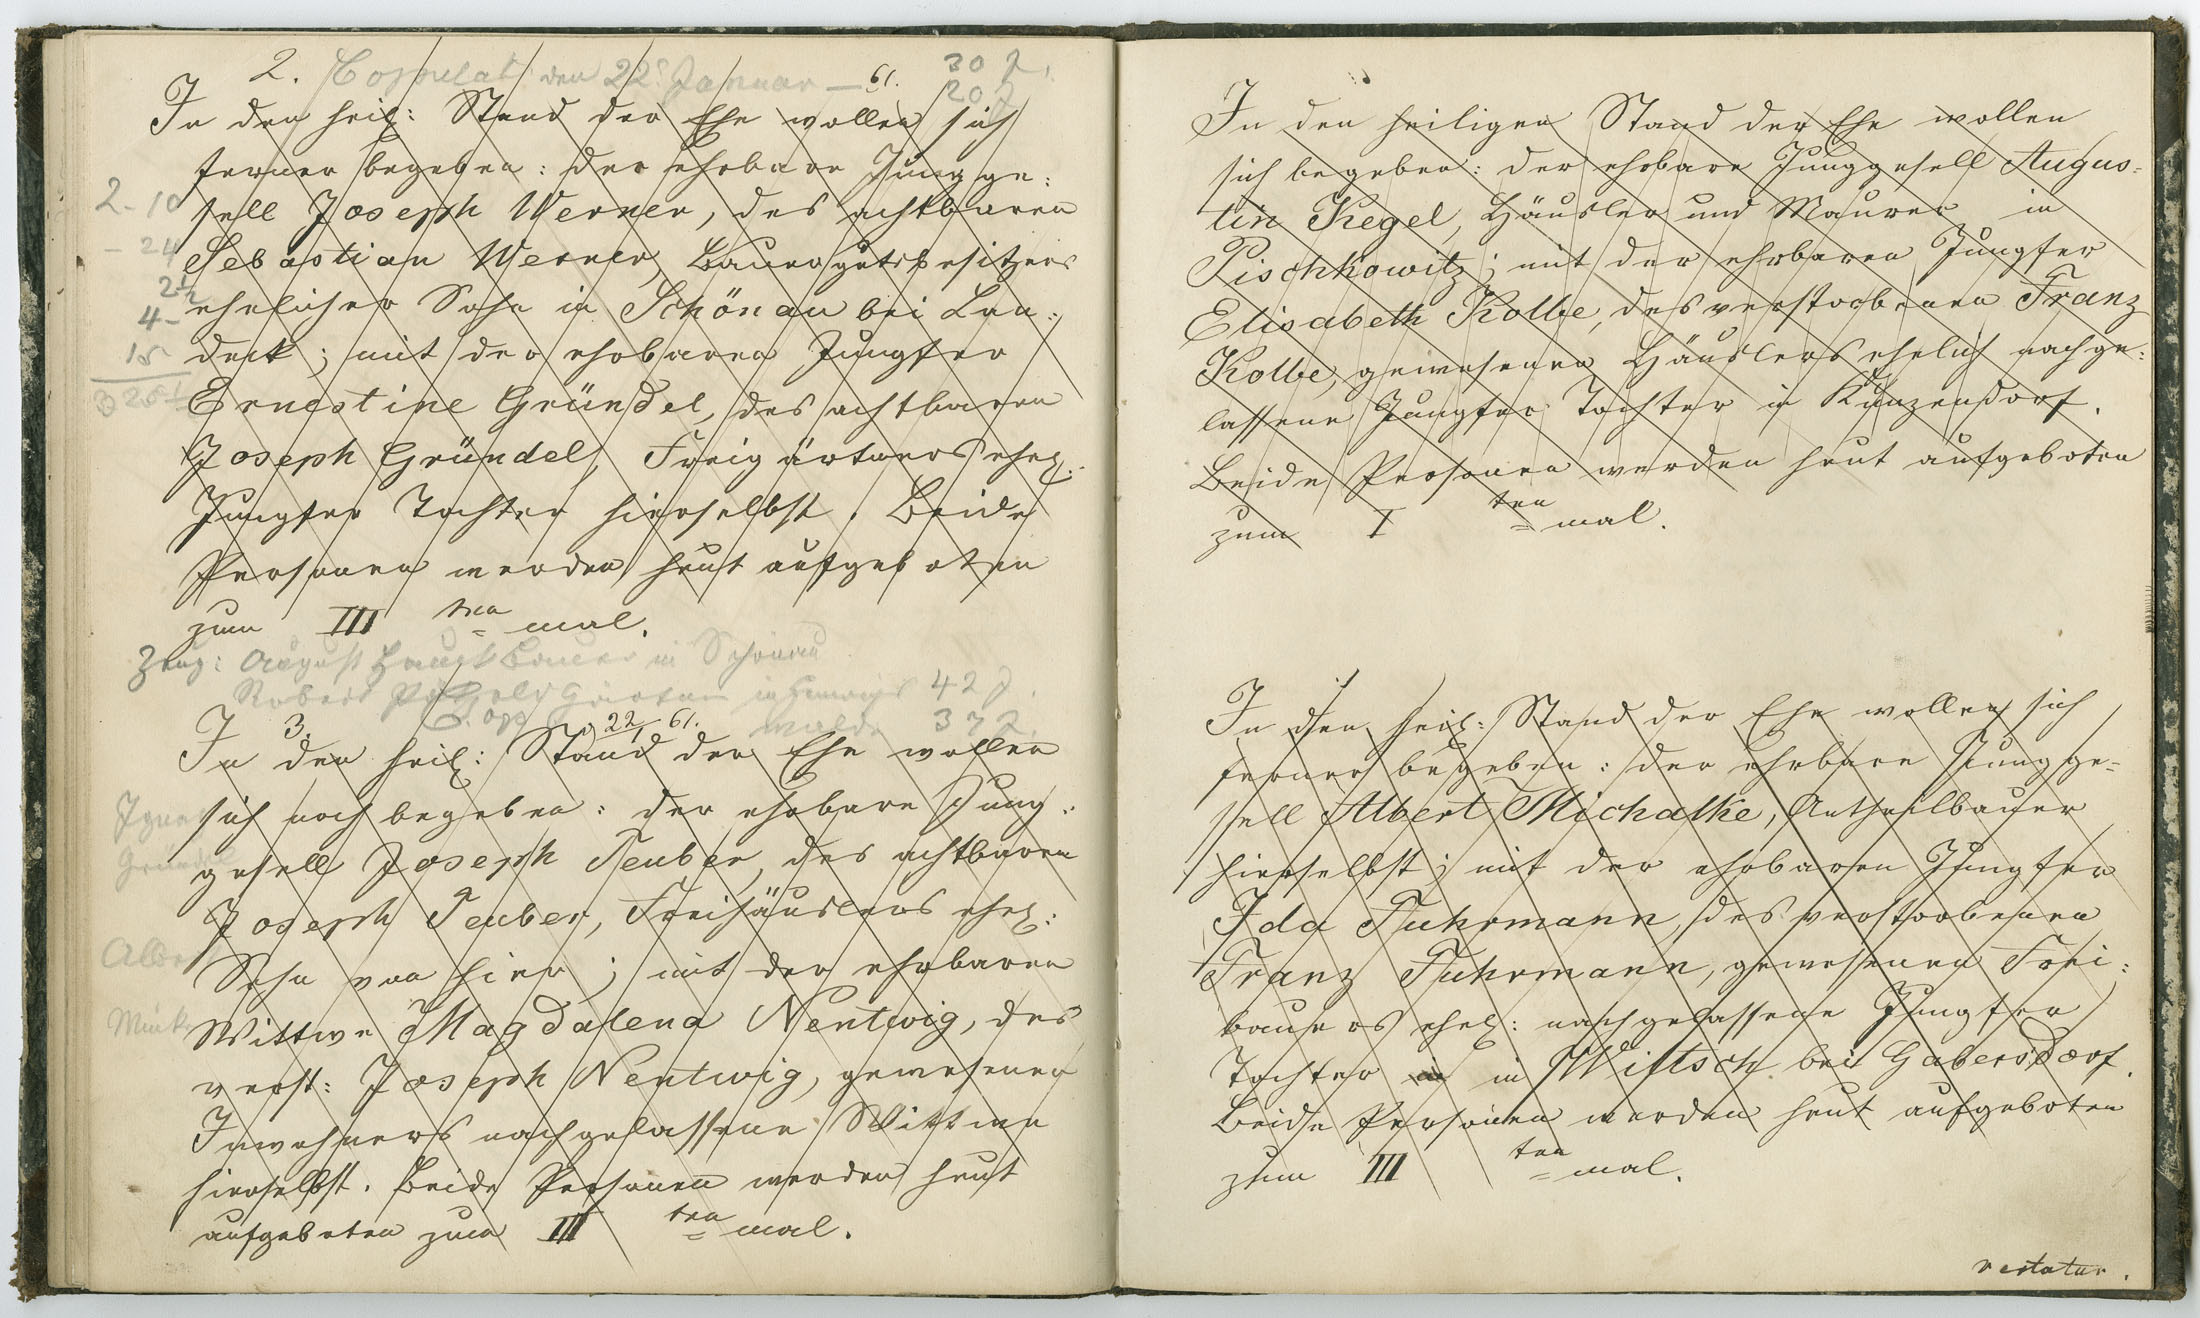 2. Copulat: den 22t Januar — 61. 30 J.
20 J
In den heil: Stand der Ehe wollen sich
ferner begeben: der ehrbare Jungge:
2 - 10
sell Joseph Werner, des achtbaren
- 24
Sebastian Werner, Bauergutsbesitzers
2½
ehelicher Sohn in Schönau bei Lan:
4 -
15
deck; mit der ehrbaren Jungfer
Ernestine Gründel, des achtbaren
Joseph Gründel, Freigärtners ehel:
Jungfer Tochter hierselbst. Beide
Personen werden heut aufgeboten
zum III ten mal.
Zeug: August Bauer in Schönau
Robert 42 J.
3. 22/1 61. walde 37 J.
In den heil: Stand der Ehe wollen
sich noch begeben: der ehrbare Jung:
gesell Joseph Teuber, des achtbaren
Joseph Teuber, Freihäuslers ehel:
Sohn von hier; mit der ehrbaren
Wittwe Magdalena Nentwig, des
verst: Joseph Nentwig, gewesenen
Inwohners nachgelassene Wittwe
hierselbst. Beide Personen werden heut
aufgeboten zum III ten mal.
In den heiligen Stand der Ehe wollen
sich begeben: der ehrbare Junggesell Augus-
tin Kegel, Häusler und Maurer in
Pischkowitz; mit der ehrbaren Jungfer
Elisabeth Kolbe, des verstorbenen Franz
Kolbe, gewesenen Häuslers ehelich nachge:
lassene Jungfer Tochter in Kunzendorf.
Beide Personen werden heut aufgeboten
zum I ten mal.
In den heil: Stand der Ehe wollen sich
ferner begeben: der ehrbare Jungge-
sell Albert Michalke, Antheilbauer
hierselbst; mit der ehrbaren Jungfer
Ida Fuhrmann, des verstorbenen
Franz Fuhrmann, gewesenen Frei:
bauers ehel: nachgelassene Jungfer
Tochter in in Wiltsch bei Gabersdorf.
Beide Personen werden heut aufgeboten
zum III ten mal.
vertatur.